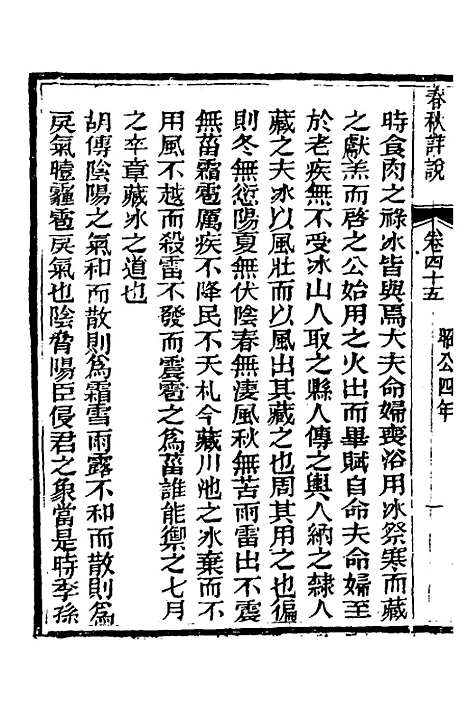 春秋詳說
卷四十五
昭公四年
一
時食肉之祿冰皆與焉大夫命婦喪浴用冰祭寒而藏
之獻羔而啓之公始用之火出而畢賦自命夫命婦至
於老疾無不受冰山人取之縣人傳之輿人納之隸人
藏之夫冰以風壯而以風出其藏之也周其用之也徧
則冬無愆陽夏無伏陰春無淒風秋無苦雨雷出不震
無菑霜雹厲疾不降民不夭札今藏川池之冰棄而不
用風不越而殺雷不發而震雹之爲菑誰能禦之七月
之卒章藏冰之道也
胡傳陰陽之氣和而散則爲霜雪雨露不和而散則爲
戾氣曀霾雹戾氣也陰脅陽臣侵君之象當是時季孫